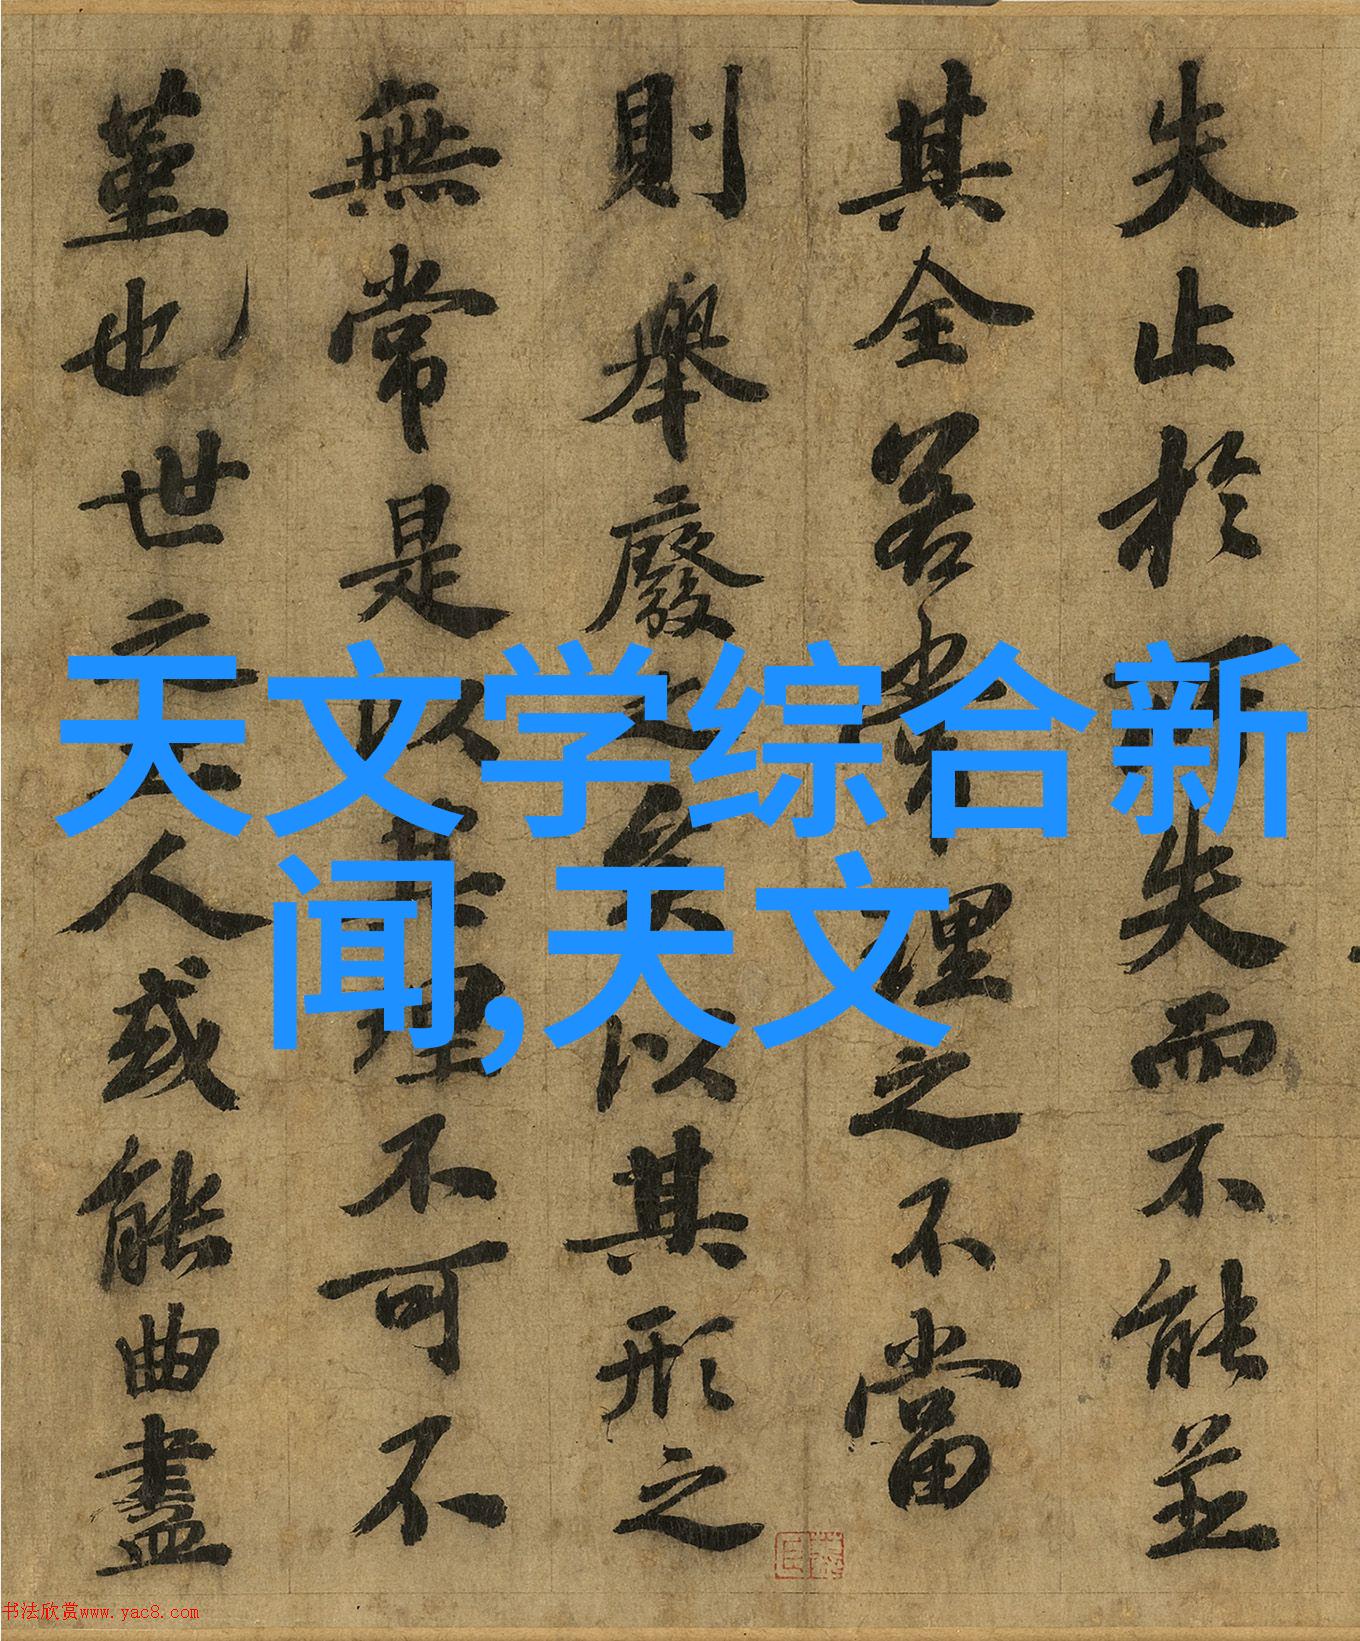 失止於所失而不能並
其全若常理之不當
則舉廢之矣以其形之
無常是以其理不可不
堇也世之工人或能曲盡
天文学综合新
闻,天文
书法欣赏www.yac8.com